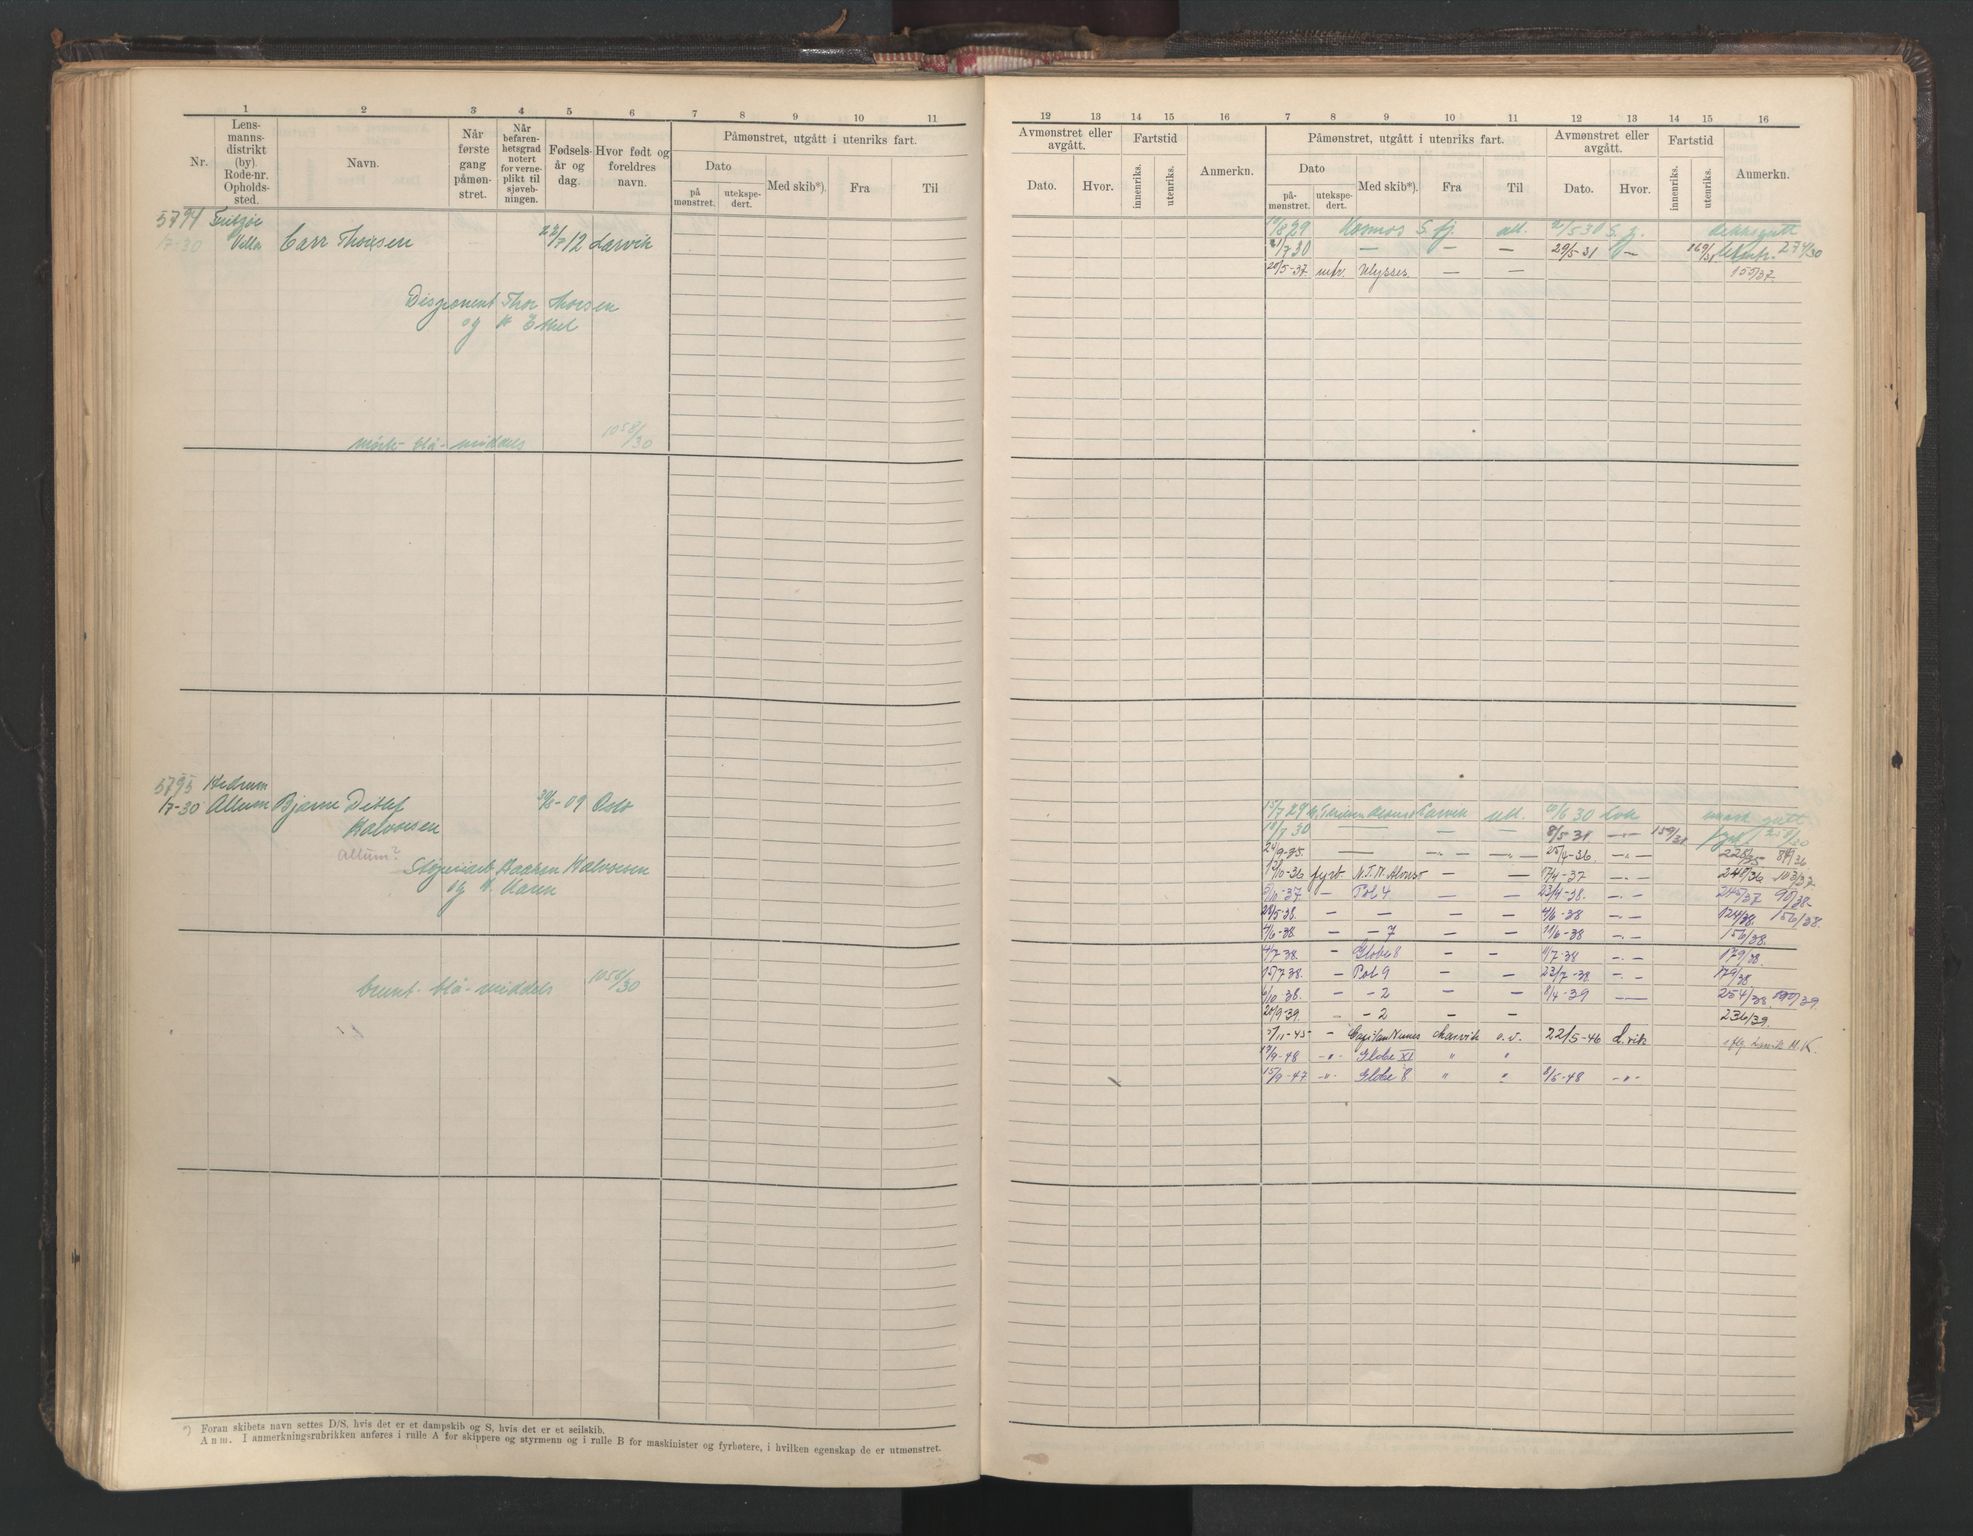 1 2 3 4 5 6 7 8 9 10 11
Nr.
Lens-
manns-
distrikt
(by).
Rode-nr.
Opholds-
sted.
Navn.
Når
første
gang
påmøn-
stret.
Når
befaren-
hetsgrad
notert
for verne-
plikt til
sjøveb-
ningen.
Fødsels-
år og
dag.
Hvor født og
foreldres
navn.
Påmønstret, utgått i utenriks fart.
Dato
på
mønstret.
utekspe-
dert.
Med skib*).
Fra
Til
5794
7-30 Villa Carr Thorsen 22/7 12 Larvik
Disponent Thor Thorsen
og H Ethel
mørk- blå- middels 1058/30
5795 Hedrum
1/7-30 Allum Bjarne Ditlef 30/6-09 Oslo
Halvorsen
Allum?
Halvorsen
og H. Karen
brunt- blå- middels 1058/30
*) Foran skibets navn settes D/S, hvis det er et dampskib og S, hvis det er et seilskib.
Anm. I anmerkningsrubrikken anføres i rulle A for skippere og styrmenn og i rulle B for maskinister og fyrbøtere, i hvilken egenskap de er utmønstret.
12 13 14 15 16 7 8 9 10 11 12 13 14 15 16
Avmønstret eller
avgått.
Dato.
Hvor.
Fartstid
innenriks.
utenriks.
Anmerkn.
Påmønstret, utgått i utenriks fart.
Dato
på-
mønstret.
utekspe-
dert.
Med skib*).
Fra
Til
Avmønstret eller
avgått.
Dato.
Hvor.
Fartstid
innenriks.
utenriks.
Anmerkn.
19/8 29 Kosmos S. fj. utl. 21/5 30 S. fj. dekksgutt
21/7 30 — — — 29/5-31 — 169/31 274/30
20/5-37. Ulysses — — 155/37.
15/7 29 Larvik utl. 10/6 30 Lvk mask gutt
18/7 30 — — — 8/5-31 —"— 159/31 258/30
24/9-35. — —"— — 25/4-36. —"— 228/35 84/36
12/10-36 fyrb N.T.N. Alonso — — 17/4-37 —"— 248/36 103/37.
5/10-37 — Pol 4 — — 23/4-38. —"— 245/37 90/38-
28/5-38. — — — — 4/6-38 —"— 124/38. 156/38.
4/6-38. — — 7 — — 11/6-38 —"— 156/38.
4/7-38. — Globe 8 — — 11/7-38 —"— 179/38.
15/7-38. — Pol 9 — — 23/7-38 —"— 179/38
6/10-38. — — 2 — — 8/4-39 — 254/38 190/39.
20/9-39. — — 2 236/39.
5/11-45- — Capitan Nunes Larvik o.v. 22/5-46 L.vik iflg. Larvik M.K.
17/9-48 —"— Globe XI " "
15/9-47 —"— Globe 8 " " 8/5-48 —"—